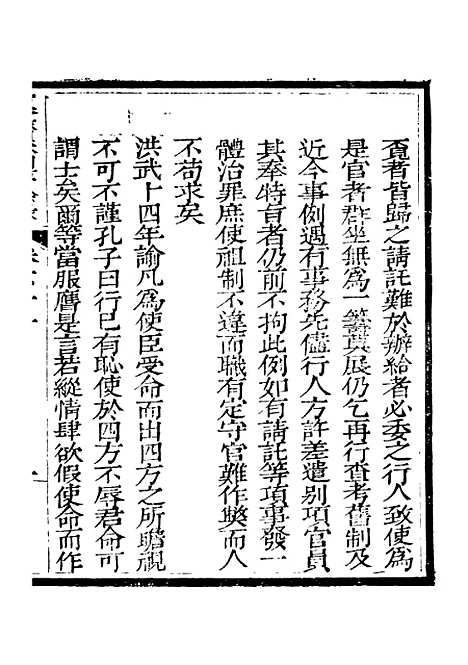 賫者皆歸之請託難於辦給者必委之行人致使為
是官者群坐無為一籌莫展仍乞再行查考舊制及
近今事例遇有事務先儘行人方許差遣別項官員
其奉特旨者仍前不拘此例如有請託等項事發一
體治罪庶使祖制不違而職有定守官難作興而人
不苟求矣
洪武十四年諭凡為使臣受命而出四方之所瞻視
不可不謹孔子曰行巳有恥使於四方不辱君命可
謂士矣爾等當服膺是言若縱情肆欲假使命而作